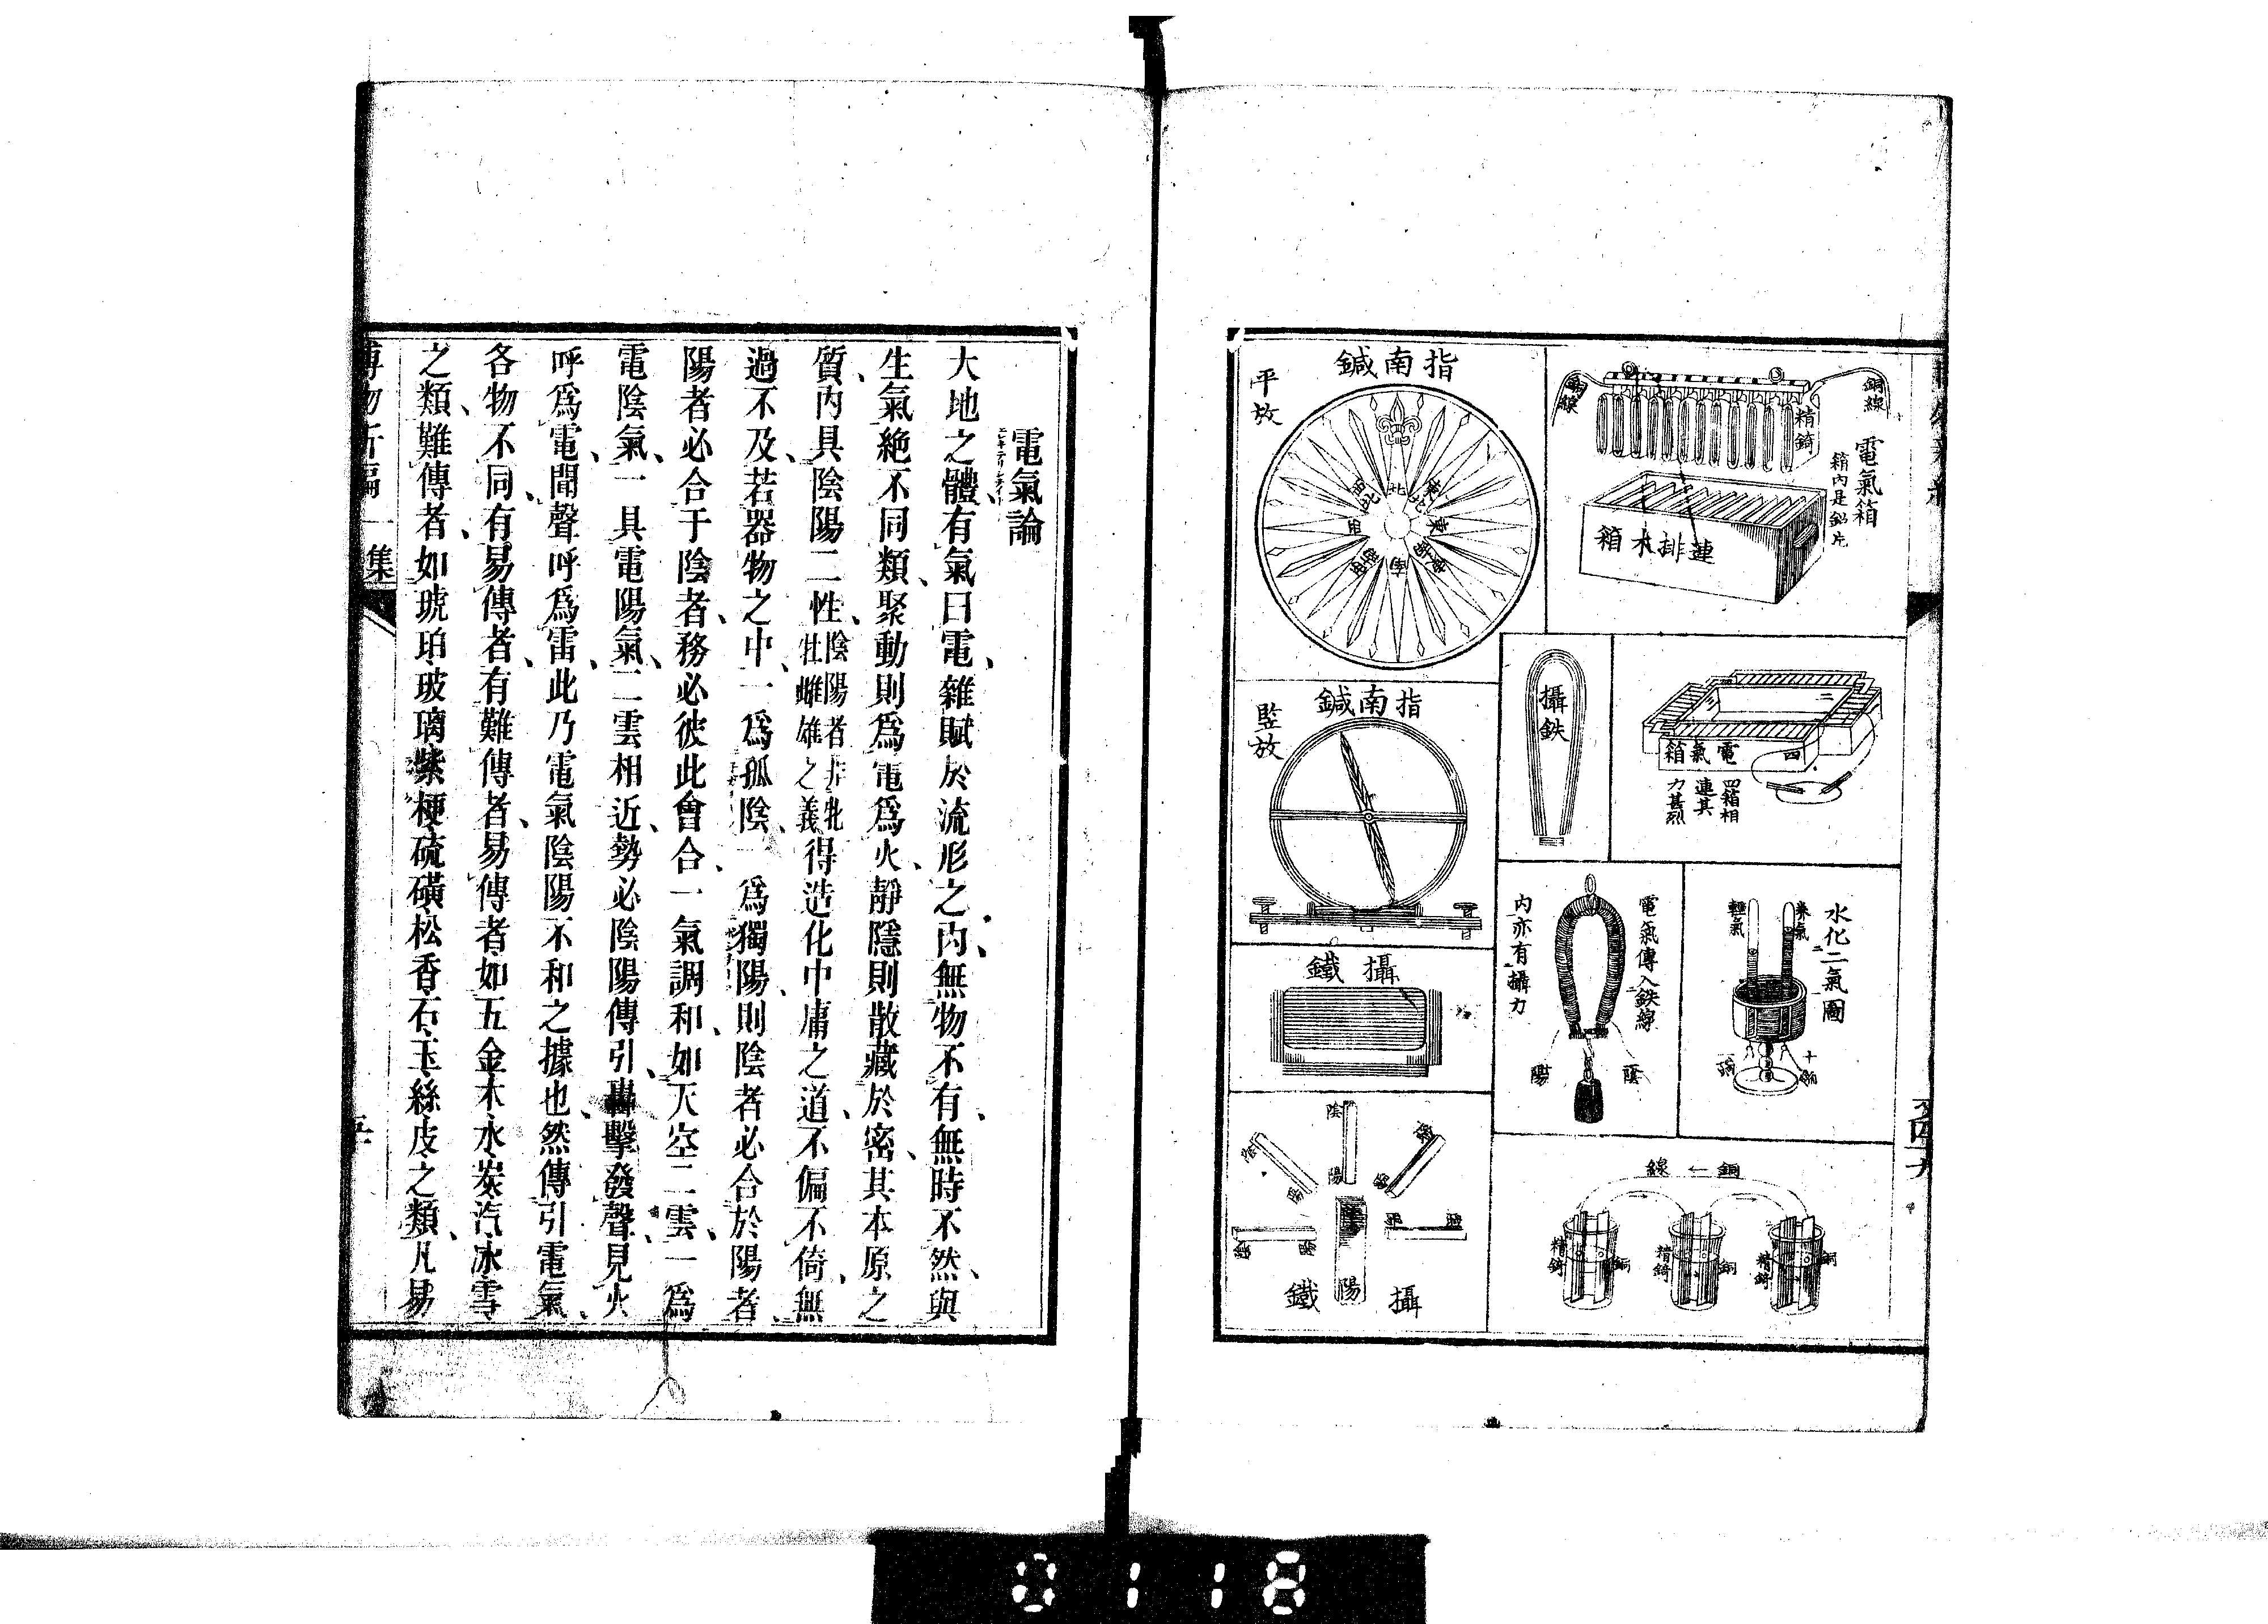 銅線
精錡
電氣箱
箱內是鉛片
連排木箱
指南鍼
平放
北
東北
東
東南
南
西南
西
西北
電氣箱
四
四箱相
連其
力甚烈
攝鉄
指南鍼
監放
水化二氣圖
養氣
輕氣
電氣傳入鉄線
內亦有攝力
陰
陽
攝鐵
銅線
精錡
銅
精錡
銅
精錡
銅
陰
陽
陰
陽
陽
攝鐵
電氣論
大地之體、有氣曰電、雜賦於流形之內、無物不有、無時不然、與
生氣絶不同類、聚動則爲電爲火、靜隱則散藏於密、其本原之
質、內具陰陽二性、陰陽者非牝
牡雌雄之義得造化中庸之道、不偏不倚、無
過不及、若器物之中、一爲孤陰、一爲獨陽、則陰者必合於陽者、
陽者必合于陰者、務必彼此會合、一氣調和、如天空二雲、一爲
電陰氣、一具電陽氣、二雲相近、勢必陰陽傳引、轟擊發聲、見火
呼爲電、聞聲呼爲雷、此乃電氣陰陽不和之據也、然傳引電氣、
各物不同、有易傳者、有難傳者、易傳者、如五金木水炭汽冰雪
之類、難傳者、如琥珀玻璃紫梗硫磺松香石玉絲皮之類、凡易
集